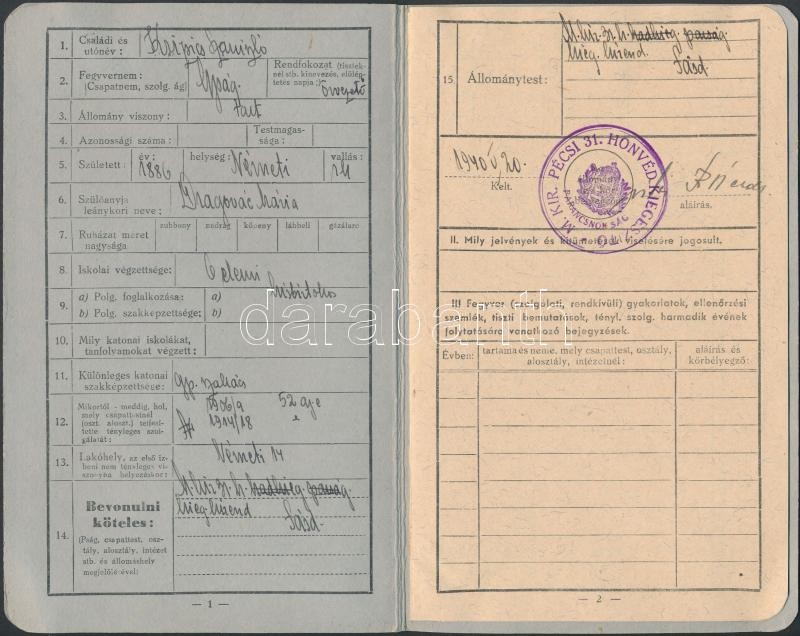 1. Családi és
utónév :
2. Fegyvernem :
(Csapatnem, szolg. ág)
Rendfokozat (tisztek-
nél stb. kinevezés, előlép-
tetés napja ;)
őrvezető
3. Állomány viszony :
4. Azonossági száma :
Testmagas-
sága :
5. Született :
év :
1886
helység :
Németi
vallás :
6. Szülőanyja
leánykori neve :
Dragovác Mária
7. Ruházat méret
nagysága
zubbony
nadrág
köpeny
lábbeli
gázálarc
8. Iskolai végzettsége:
6 elemi
9. a) Polg. foglalkozása :
b) Polg. szakképzettsége:
a)
b)
kisbirtokos
10. Mily katonai iskolákat,
tanfolyamokat végzett :
11. Különleges katonai
szakképzettsége:
12. Mikortól - meddig, hol,
mely csapattestnél
(oszt. aloszt.) teljesí-
tette tényleges szol-
gálatát :
1914/18
52
13. Lakóhely, az első íz-
beni nem tényleges vi-
szonyba helyezéskor:
Németi 14
14. Bevonulni
köteles :
(Pság, csapattest, osz-
tály, alosztály, intézet
stb. és állomáshely
megjelölésével:
Sásd
— 1 —
15. Állománytest :
Sásd
1940 V 20.
Kelt.
aláírás.
M. KIR. PÉCSI 31. HONVÉD KIEGÉSZ
PARANCSNOKSÁG
II. Mily jelvények és kitüntetések viselésére jogosult.
III Fegyver (szolgálati, rendkívüli) gyakorlatok, ellenőrzési
szemlék, tiszti bemutatások, tényl. szolg. harmadik évének
folytatására vonatkozó bejegyzések.
Évben:
tartama és neme, mely csapattest, osztály,
alosztály, intézetnél :
aláírás és
körbélyegző:
— 2 —
darabanth